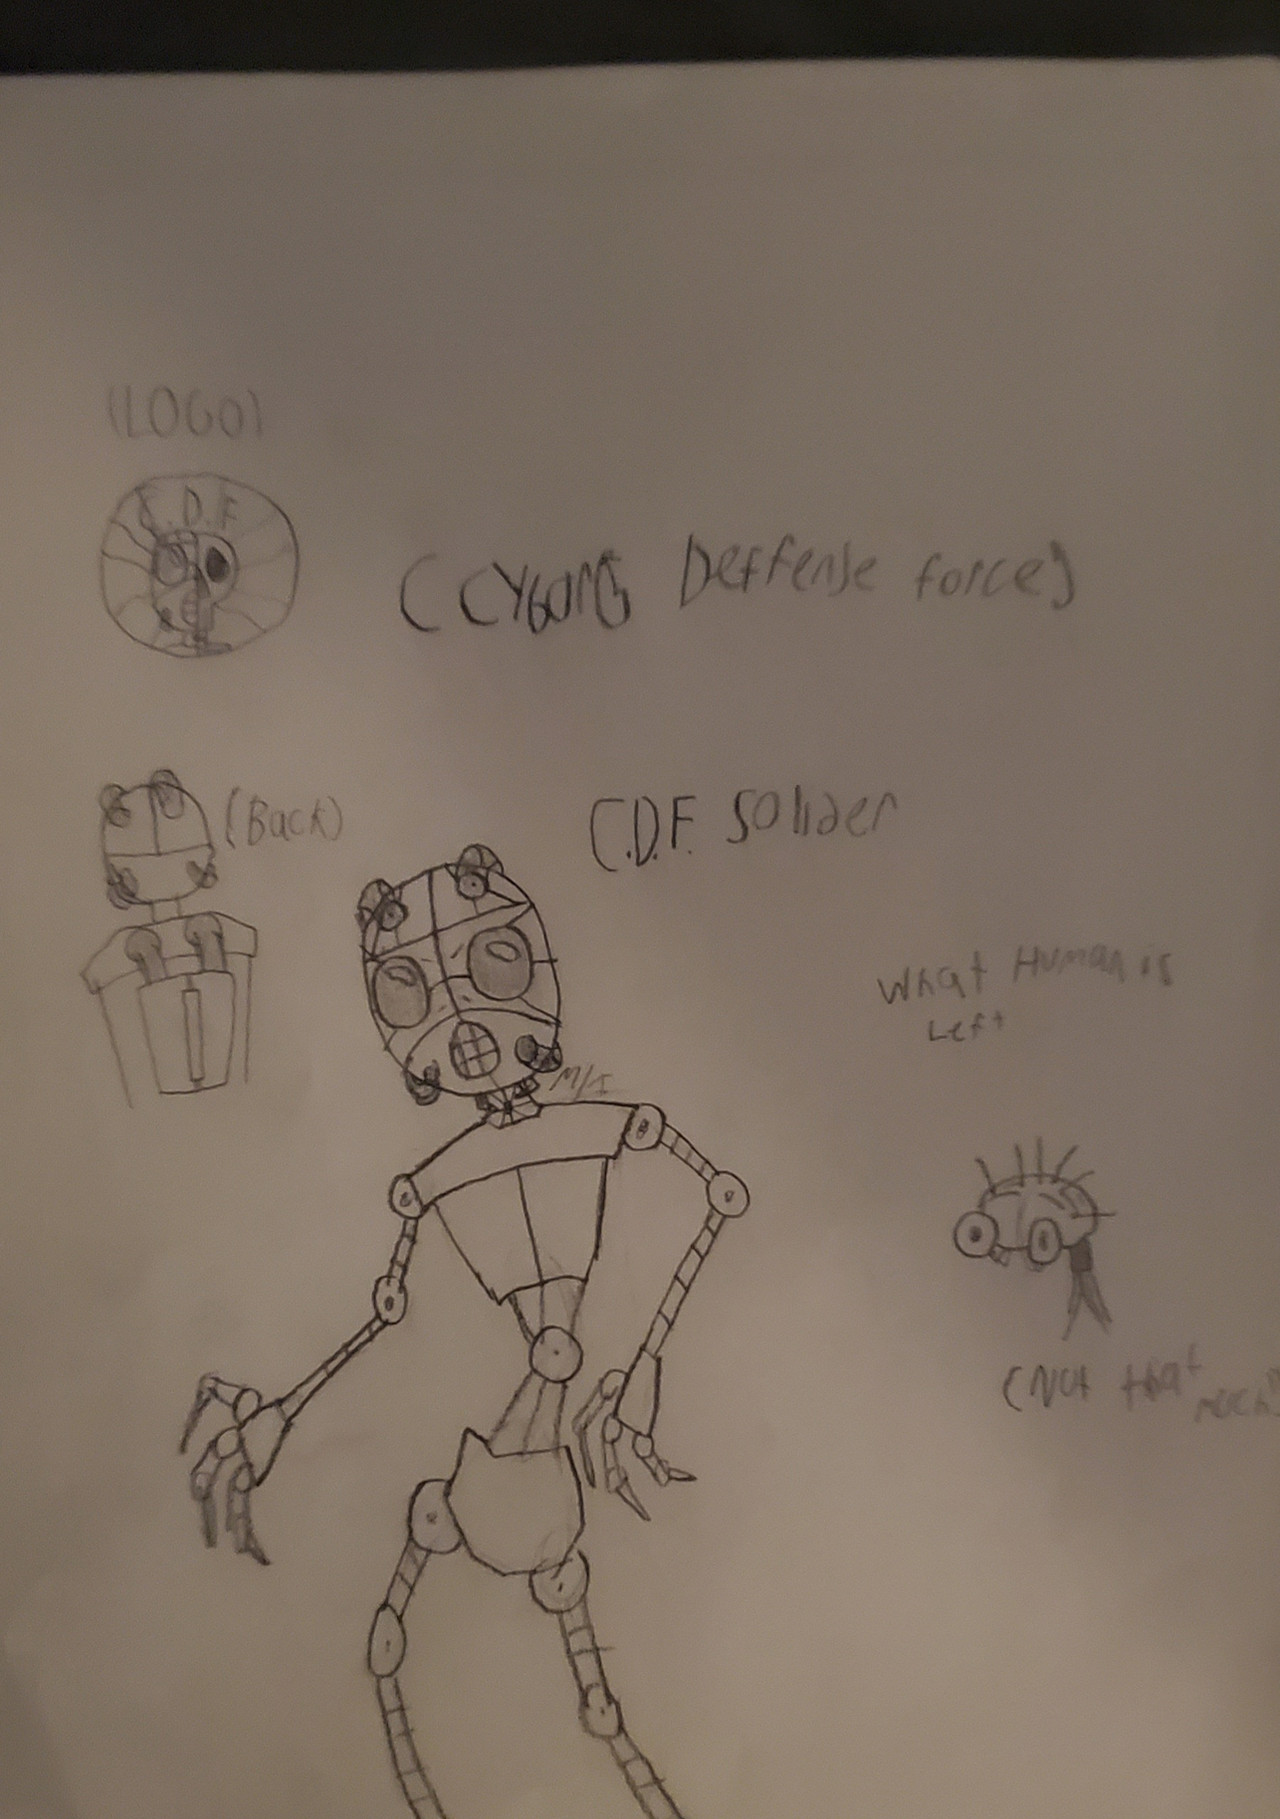 (LOGO)
C.D.F
(CYBORG Deffense force)
(Back)
C.D.F. Solider
What Human is
Left
M/I
(Not that
much)